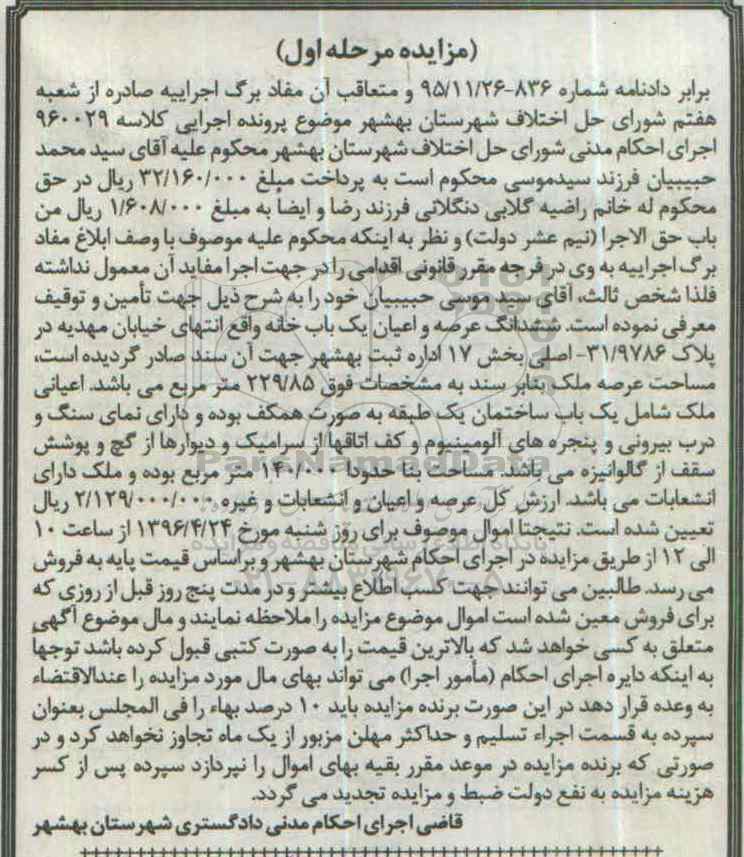 (مزایده مرحله اول)
برابر دادنامه شماره ۸۳۶-۹۵/۱۱/۲۶ و متعاقب آن مفاد برگ اجراییه صادره از شعبه
هفتم شورای حل اختلاف شهرستان بهشهر موضوع پرونده اجرایی کلاسه ۹۶۰۰۲۹
اجرای احکام مدنی شورای حل اختلاف شهرستان بهشهر محکوم علیه آقای سید محمد
حبیبیان فرزند سیدموسی محکوم است به پرداخت مبلغ ۳۲/۱۶۰/۰۰۰ ریال در حق
محکوم له خانم راضیه گلابی دنگلانی فرزند رضا و ایضاً به مبلغ ۱/۶۰۸/۰۰۰ ریال من
باب حق الاجرا (نیم عشر دولت) و نظر به اینکه محکوم علیه موصوف با وصف ابلاغ مفاد
برگ اجراییه به وی در فرجه مقرر قانونی اقدامی را در جهت اجرا مفاید آن معمول نداشته
فلذا شخص ثالث، آقای سید موسی حبیبیان خود را به شرح ذیل جهت تأمین و توقیف
معرفی نموده است. ششدانگ عرصه و اعیان یک باب خانه واقع انتهای خیابان مهدیه در
پلاک ۳۱/۹۷۸۶- اصلی بخش ۱۷ اداره ثبت بهشهر جهت آن سند صادر گردیده است،
مساحت عرصه ملک بنابر سند به مشخصات فوق ۲۲۹/۸۵ متر مربع می باشد. اعیانی
ملک شامل یک باب ساختمان یک طبقه به صورت همکف بوده و دارای نمای سنگ و
درب بیرونی و پنجره های آلومینیوم و کف اتاقها از سرامیک و دیوارها از گچ و پوشش
سقف از گالوانیزه می باشد. مساحت بنا حدودا ۱۴۰/۰۰۰ متر مربع بوده و ملک دارای
انشعابات می باشد. ارزش کل عرصه و اعیان و انشعابات و غیره ۲/۱۲۹/۰۰۰/۰۰۰ ریال
تعیین شده است. نتیجتا اموال موصوف برای روز شنبه مورخ ۱۳۹۶/۴/۲۴ از ساعت ۱۰
الی ۱۲ از طریق مزایده در اجرای احکام شهرستان بهشهر و براساس قیمت پایه به فروش
می رسد. طالبین می توانند جهت کسب اطلاع بیشتر و در مدت پنج روز قبل از روزی که
برای فروش معین شده است اموال موضوع مزایده را ملاحظه نمایند و مال موضوع آگهی
متعلق به کسی خواهد شد که بالاترین قیمت را به صورت کتبی قبول کرده باشد توجهاً
به اینکه دایره اجرای احکام (مأمور اجرا) می تواند بهای مال مورد مزایده را عندالاقتضاء
به وعده قرار دهد در این صورت برنده مزایده باید ۱۰ درصد بهاء را فی المجلس بعنوان
سپرده به قسمت اجراء تسلیم و حداکثر مهلن مزبور از یک ماه تجاوز نخواهد کرد و در
صورتی که برنده مزایده در موعد مقرر بقیه بهای اموال را نپردازد سپرده پس از کسر
هزینه مزایده به نفع دولت ضبط و مزایده تجدید می گردد.
قاضی اجرای احکام مدنی دادگستری شهرستان بهشهر
ParsNamadData